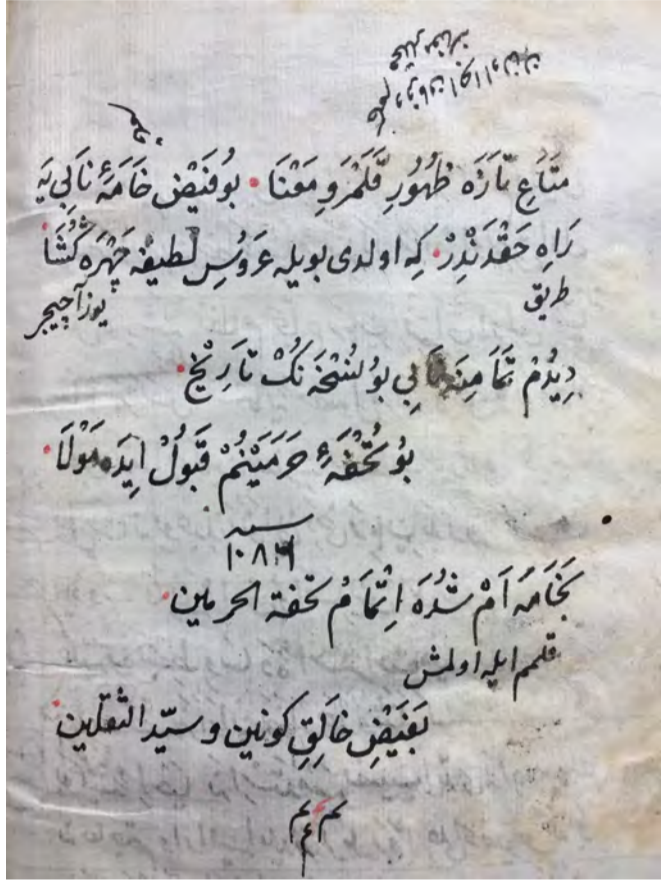 مَتَاعِ تَازَه ظُهُورِ قَلَمْرَوِ مَعْنَا • بُو فَيْضْ خَامَهٔ نَابِي يَه
رَاهِ حَقْدَنْدِرْ • كِه اولدى بويله عَرُوسِ لَطيفْه چَهْرَه كُشَا
طريق
يوز آچيجر
دِيدُمْ تَمَامِنَه نَابِي بُو نُسْخَه نَكْ تَارِيخْ •
بُو تُحْفَهٔ حَرَمَيْنُمْ قَبُولْ ايدَه مَوْلَا •
سنه
بَخَامَه اَمْ شُدَه اِتْمَامْ تحفة الحرمين •
قلمم ايله اولمش
بَفَيْضِ خَالِقِ كونين و سيّد الثقلين •